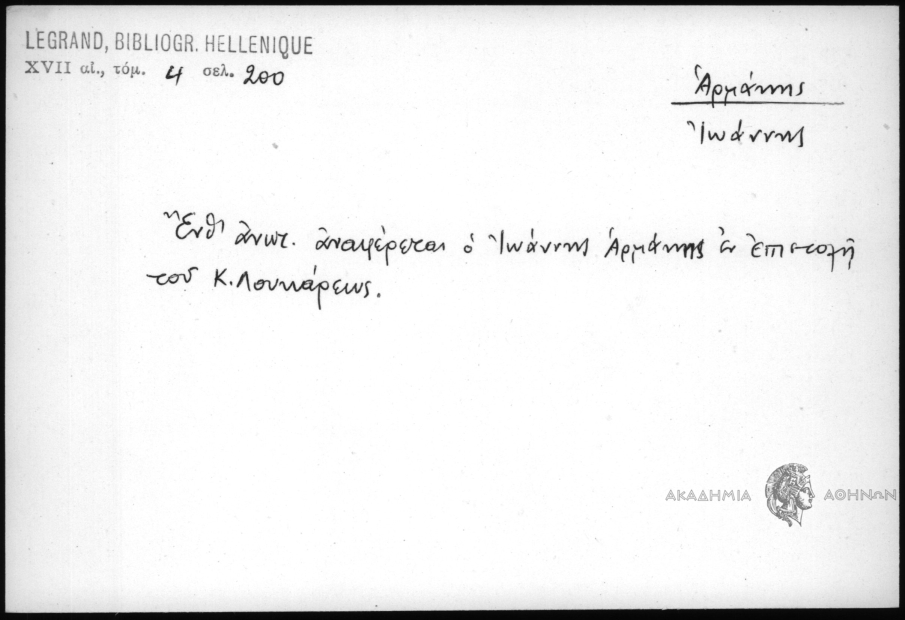 LEGRAND, BIBLIOGR. HELLENIQUE
XVII αἰ., τόμ. 4 σελ. 200
Ἁρμάκης
Ἰωάννης
Ἔνθ' ἀνωτ. ἀναφέρεται ὁ Ἰωάννης Ἁρμάκης ἐν ἐπιστολῇ
τοῦ Κ. Λουκάρεως.
ΑΚΑΔΗΜΙΑ ΑΘΗΝΩΝ